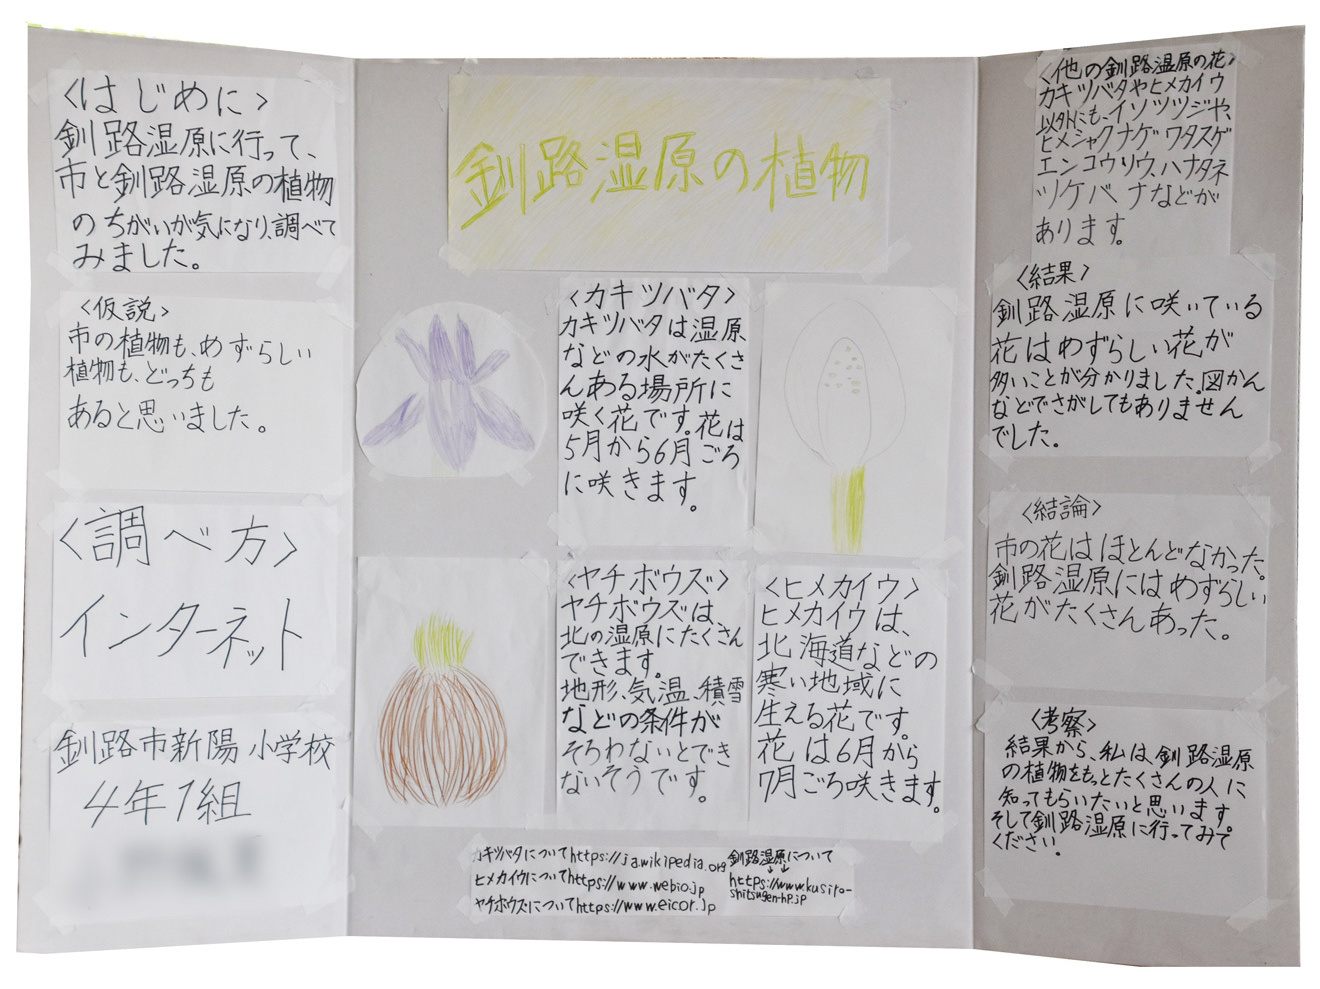 <はじめに>
釧路湿原に行って、
市と釧路湿原の植物
のちがいが気になり、調べて
みました。
<仮説>
市の植物も、めずらしい
植物も、どっちも
あると思いました。
<調べ方>
インターネット
釧路市新陽小学校
4年1組
釧路湿原の植物
<カキツバタ>
カキツバタは湿原
などの水がたくさ
んある場所に
咲く花です。花は
5月から6月ごろ
に咲きます。
<ヤチボウズ>
ヤチボウズは、
北の湿原にたくさん
できます。
地形、気温、積雪
などの条件が
そろわないとでき
ないそうです。
<ヒメカイウ>
ヒメカイウは、
北海道などの
寒い地域に
生える花です。
花は6月から
7月ごろ咲きます。
カキツバタについてhttps://ja.wikipedia.org
ヒメカイウについてhttps://www.webio.jp
ヤチボウズについてhttps://www.eicor.jp
釧路湿原について
↓↓
https://www.kusiro-
shitsugen-hp.jp
<他の釧路湿原の花>
カキツバタやヒメカイウ
以外にも、イソツツジや、
ヒメシャクナゲ ワタスゲ
エンコウソウ、ハナタネ
ツケバナなどが
あります。
<結果>
釧路湿原に咲いている
花はめずらしい花が
多いことが分かりました。図かん
などでさがしてもありません
でした。
<結論>
市の花はほとんどなかった。
釧路湿原にはめずらしい
花がたくさんあった。
<考察>
結果から、私は、釧路湿原
の植物をもっとたくさんの人に
知ってもらいたいと思います。
そして釧路湿原に行ってみて
ください。